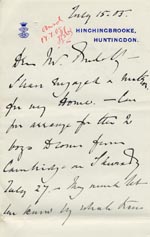 July 15. 05.
HINCHINGBROOKE,
HUNTINGDON.
Dear Mr
I have engaged a
for my Home. – Can
you arrange for the 2
boys to come from
Cambridge on Thursday
July 27 – My
know by what